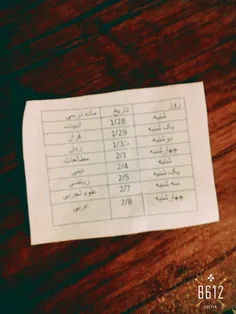 روز تاریخ ماده درسی
شنبه 1/28 ادبیات
یک شنبه 1/29 قرآن
دوشنبه 1/30 زبان
چهارشنبه 2/1 مطالعات
شنبه 2/4 دینی
یک شنبه 2/5 ریاضی
سه شنبه 2/7 علوم تجربی
چهارشنبه 2/8 عربی
B612